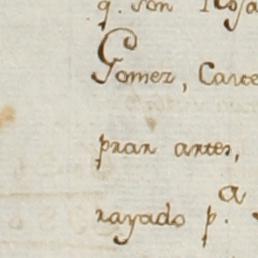 q. son Roja
Gomez, Carte
prar antes,
rayado p.ª